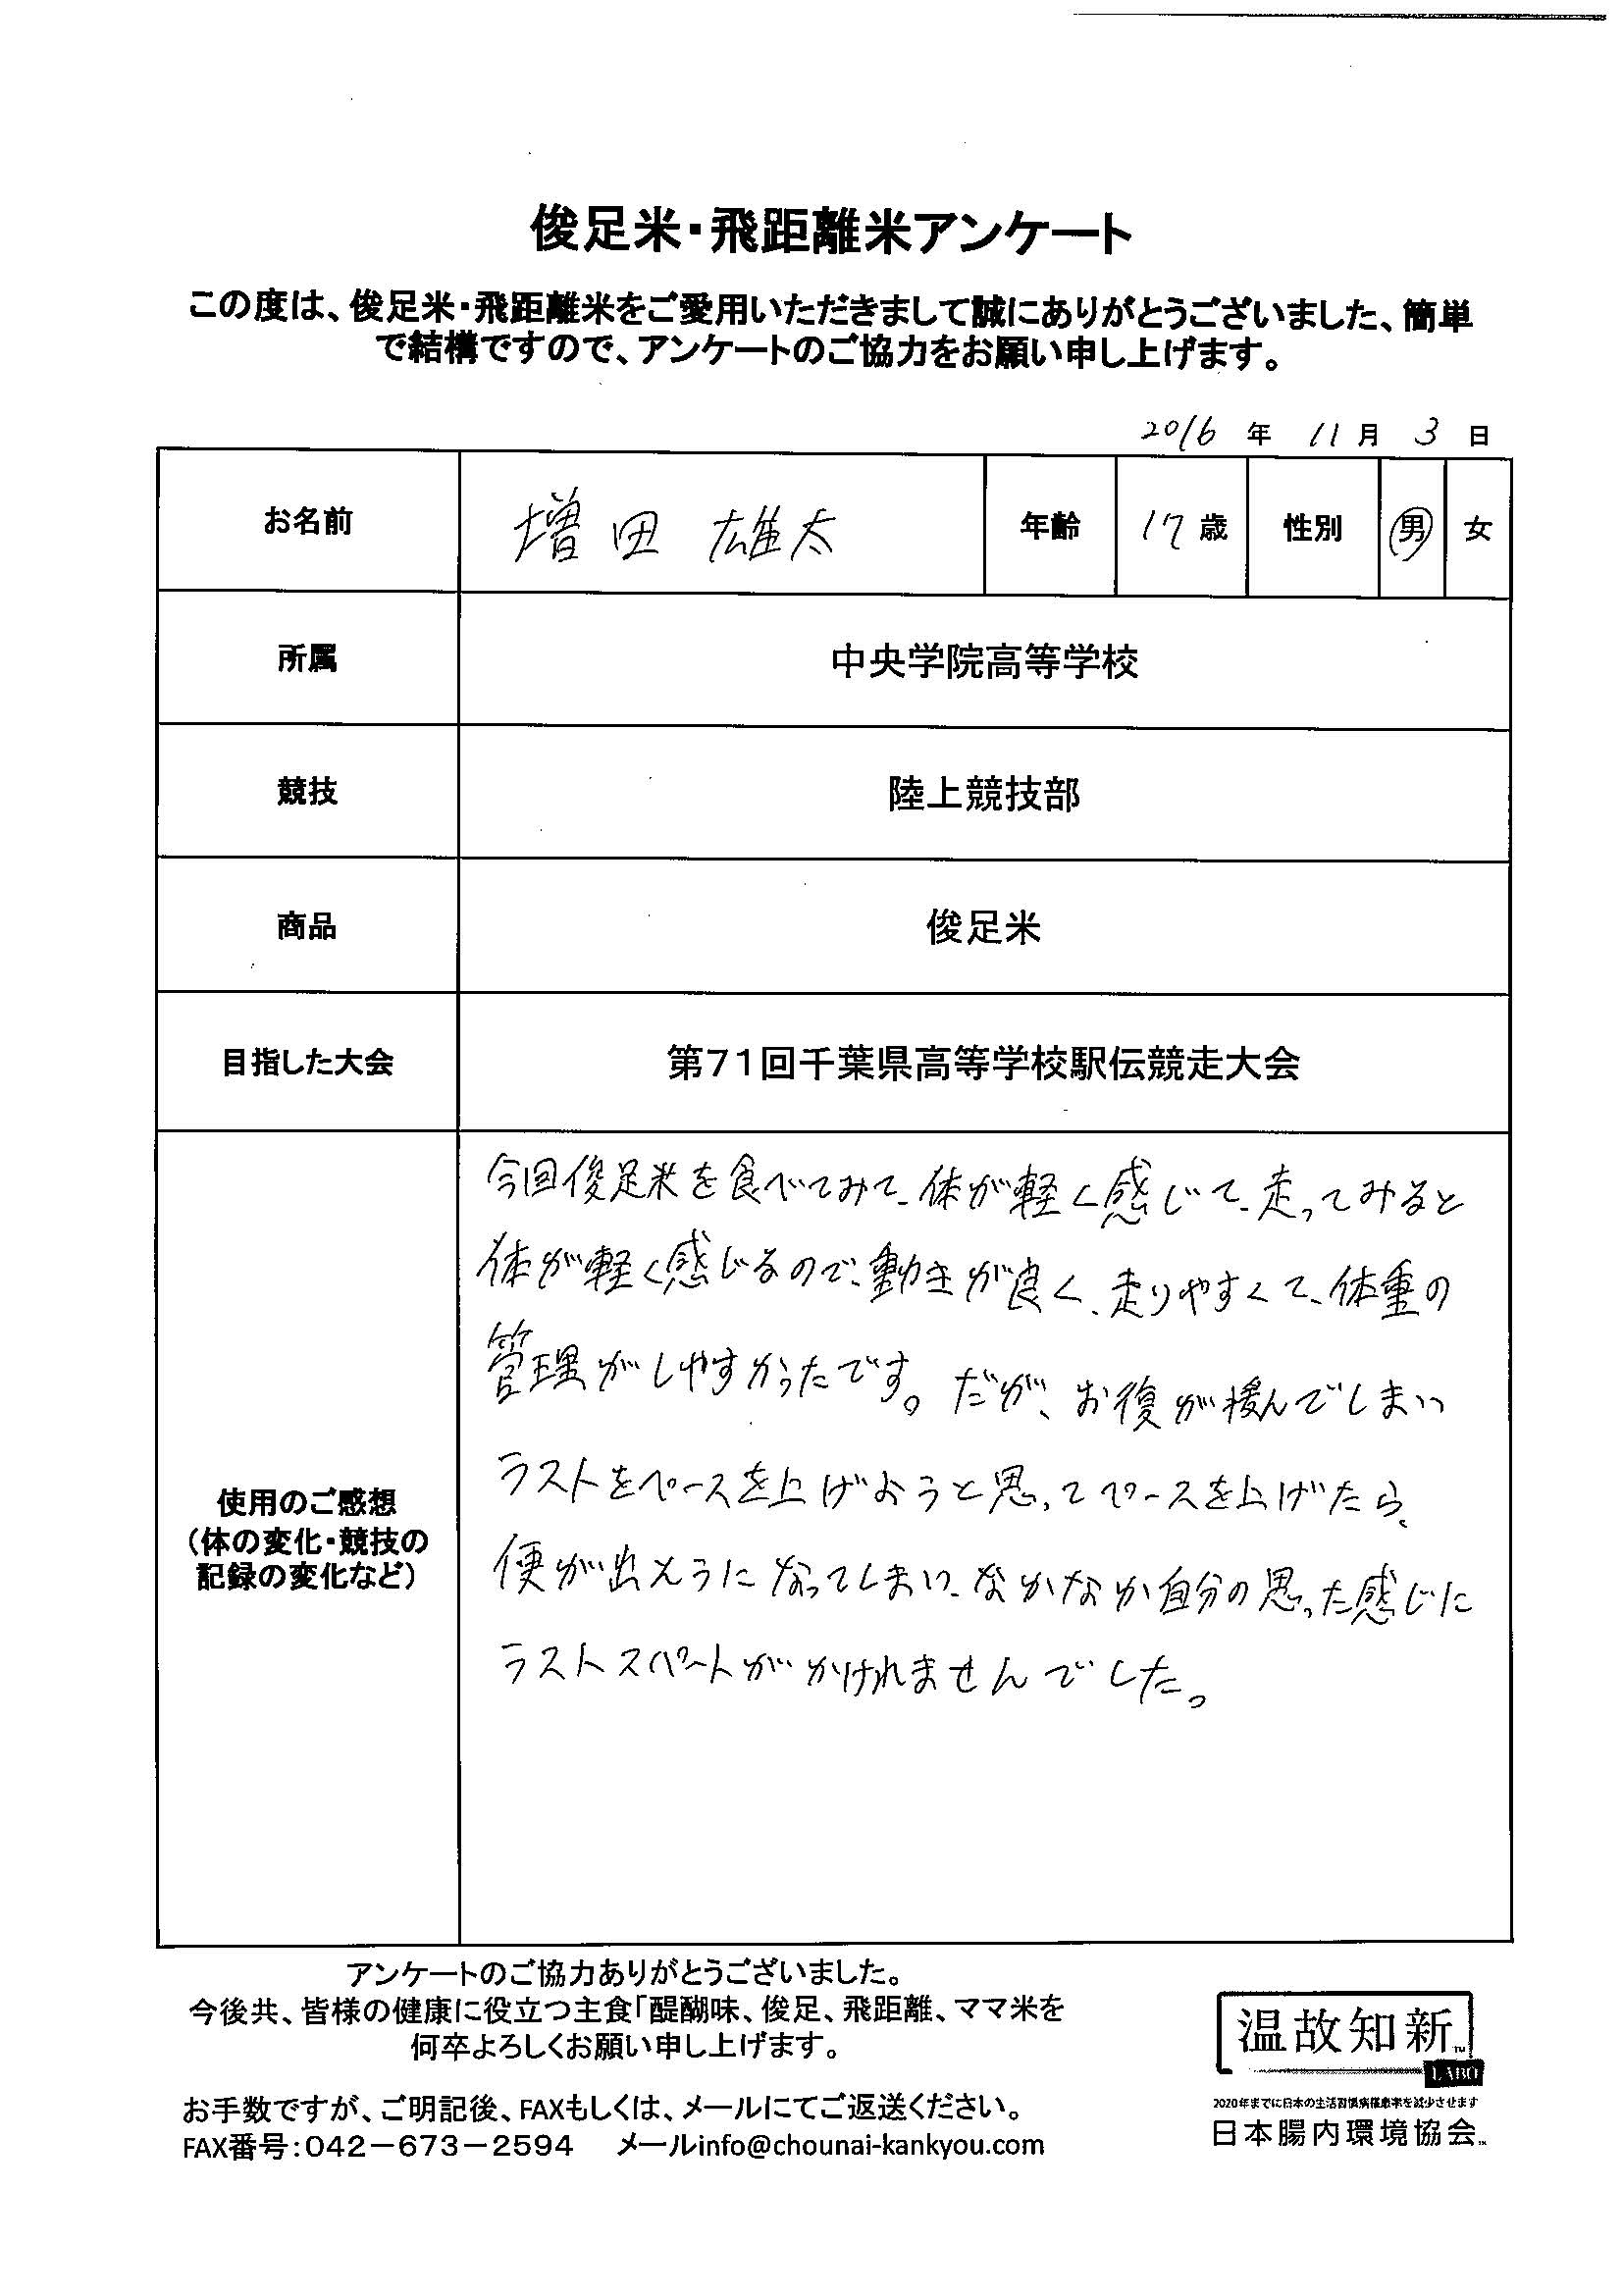 俊足米・飛距離米アンケート
この度は、俊足米・飛距離米をご愛用いただきまして誠にありがとうございました、簡単
で結構ですので、アンケートのご協力をお願い申し上げます。
2016 年 11 月 3 日
お名前 増田 雄太 年齢 17 歳 性別 男 女
所属 中央学院高等学校
競技 陸上競技部
商品 俊足米
目指した大会 第71回千葉県高等学校駅伝競走大会
使用のご感想
（体の変化・競技の
記録の変化など）
今回俊足米を食べてみて、体が軽く感じて、走ってみると
体が軽く感じるので、動きが良く、走りやすくて、体重の
管理がしやすかったです。だが、お復が援んでしまい
ラストをペースを上げようと思ってペースを上げたら、
便が出そうになってしまい、なかなか自分の思った感じに
ラストスパートがかけれませんでした。
アンケートのご協力ありがとうございました。
今後共、皆様の健康に役立つ主食「醍醐味、俊足、飛距離、ママ米を
何卒よろしくお願い申し上げます。
お手数ですが、ご明記後、FAXもしくは、メールにてご返送ください。
FAX番号：042－673－2594 メールinfo@chounai-kankyou.com
温故知新™
LABO
2020年までに日本の生活習慣病罹患率を減少させます
日本腸内環境協会™